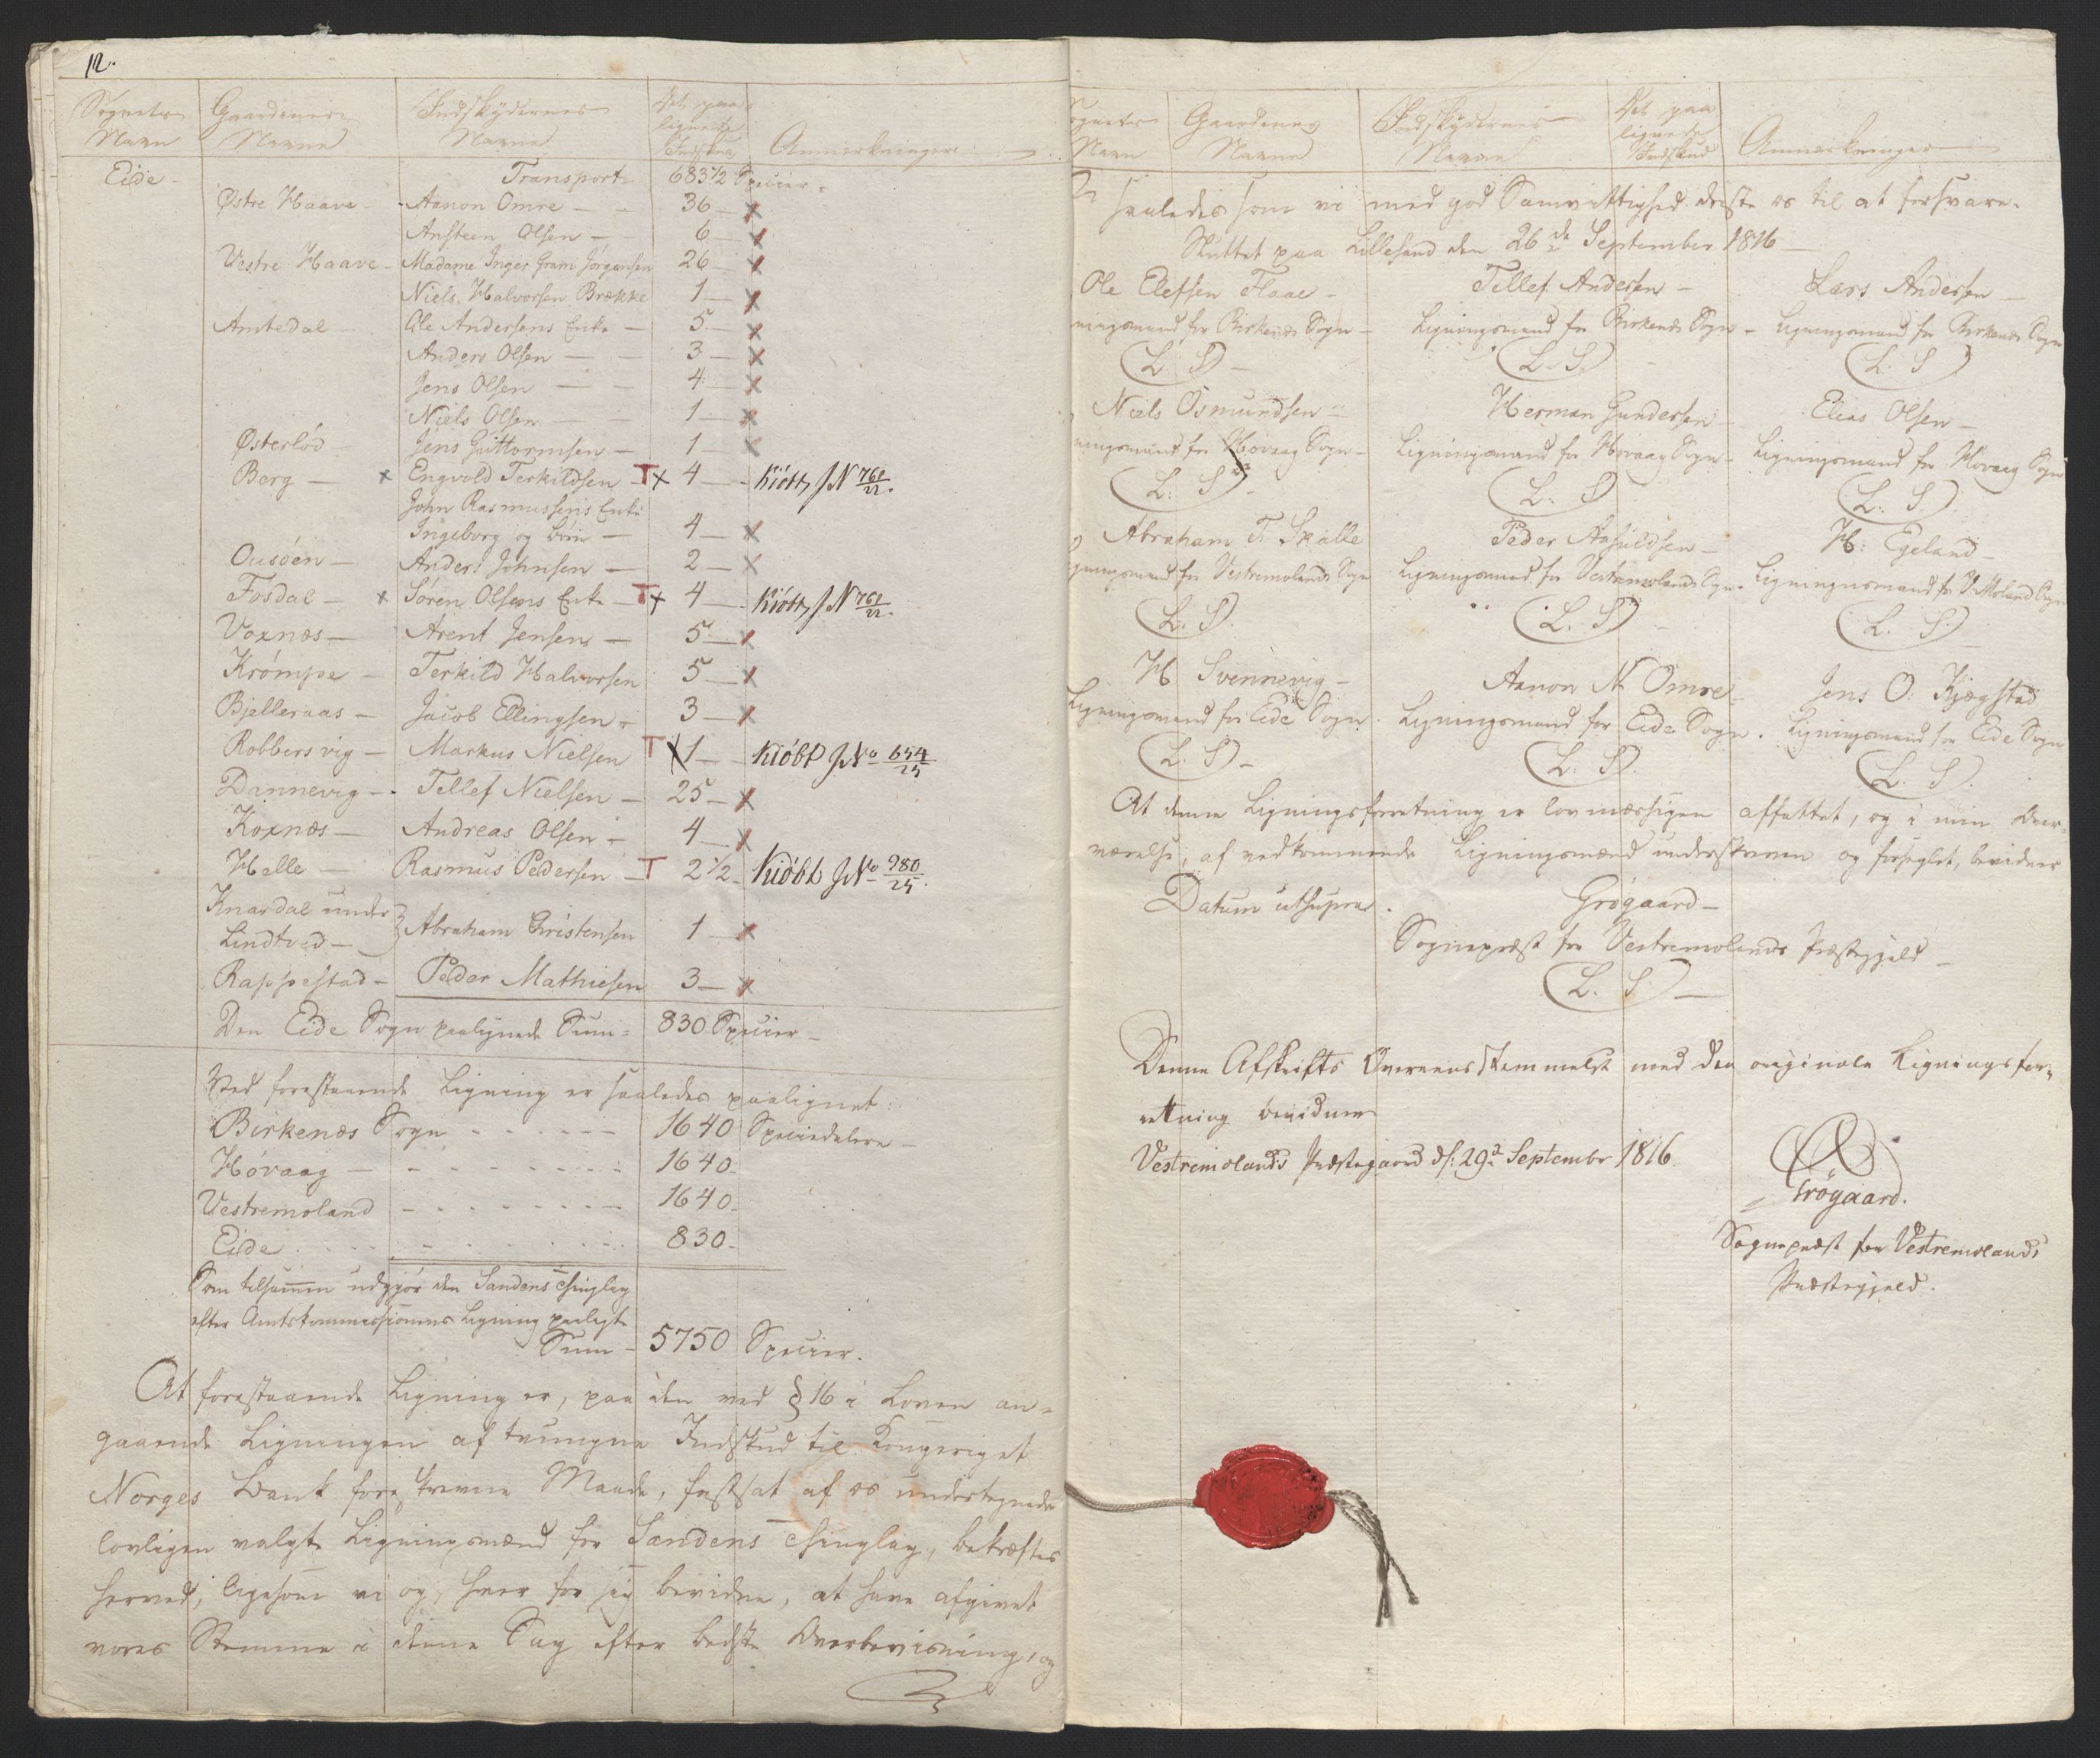 12.
Sognets Navn | Gaardenes Navne | Indskydernes Navne | Det paalignede Indskud | Anmærkninger
Eide - Transport - 683 1/2 Specier -
Østre Haave - Aanon Omre - 36 - x
Ansteen Olsen - 6 - x
Vestre Haave - Madame Inger Gram Jörgensen 26 - x
Niels Halvorsen Brække 1 - x
Amtedal - Ole Andersens Enke - 5 - x
Anders Olsen - 3 - x
Jens Olsen - 4 - x
Niels Olsen - 1 - x
Østerlöd - Jens Guttormsen - 1 - x
Berg - x Engvold Terkildsen - T x 4 - Kiöbt J N 761/22.
John Rasmussens Enke
Ingeborg og börn - 4 - x
Ousöen - Anders Johnsen - 2 - x
Fosdal - x Sören Olsens Enke - T x 4 - Kiöbt J N 761/22.
Voxnæs - Arent Jensen - 5 - x
Krömpe - Terkild Halvorsen 5 - x
Bjelleraas - Jacob Ellingsen - 3 - x
Robbersvig - Markus Nielsen T x 1 - Kiöbt J No 654/25
Dannevig - Tellef Nielsen - 25 - x
Koxnæs - Andreas Olsen - 4 - x
Helle - Rasmus Pedersen - T 2 1/2 - Kiöbt J No 980/25.
Knardal under
Lindtved - } Abraham Christensen 1 - x
Rappestad - Peder Mathiesen 3 - x
Den Eide Sogn paalignede Sum - 830 Specier -
Ved forestaaende Ligning er saaledes paalignet:
Birkenæs Sogn - - - - 1640 Speciedalere -
Hövaag - - - - 1640 -
Vestremoland - - - - 1640 -
Eide - - - - 830 -
Som tilsammen udgjör den Sandens Thinglag
efter Amtskommissionens Ligning paalagte
Sum - 5750 Specier.
At forestaaende Ligning er, paa den ved § 16 i Loven an-
gaaende Ligningen af tvungne Indskud til Kongeriget
Norges Bank foreskrevne Maade, fastsat af os undertegnede
lovligen valgte Ligningsmænd for Sandens Thinglag, bekræftes
herved, ligesom vi og, hver for sig bevidne, at have afgivet
vores Stemme i denne Sag efter bedste Overbeviisning, og
Sognets Navn | Gaardenes Navne | Indskydernes Navne | Det paalignede Indskud | Anmærkninger
saaledes som vi med god Samvittighed drister os til at forsvare.
Sluttet paa Lillesand den 26de September 1816 -
Ole Elefsen Flaae - Tellef Andersen - Lars Andersen -
ningsmand for Birkenæs Sogn - Ligningsmand for Birkenæs Sogn - Ligningsmand for Birkenæs Sogn
(L. S) - (L. S.) - (L. S)
Niels Osmundsen - Herman Gundersen - Elias Olsen -
ningsmand for Hövaag Sogn - Ligningsmand for Hövaag Sogn - Ligningsmand for Hövaag Sogn
(L. S) - (L. S) (L. S.)
Abraham T. Skalle Peder Aasuldsen - H: Egeland -
gningsmand for Vestremolands Sogn Ligningsmand for Vestremolands Sogn - Ligningsmand for V: Moland Sogn
(L. S). (L. S) (L. S)
H. Svennevig - Aanon N Omre - Jens O: Kjægstad
Ligningsmand for Eide Sogn. Ligningsmand for Eide Sogn. Ligningsmand for Eide Sogn
(L. S) - (L. S). (L. S).
At denne Ligningsforretning er lovmæssigen affattet, og i min Over-
værelse, af vedkommende Ligningsmænd underskreven og forseglet, bevidner
Datum utsupra. Grögaard -
Sognepræst for Vestremolands Præstegjeld -
(L. S.) -
Denne Afskrifts Overeensstemmelse med den originale Ligningsfor-
retning bevidner
Vestremolands Præstegaard d: 29de September 1816.
Grögaard.
Sognepræst for Vestremolands
Præstegjeld.